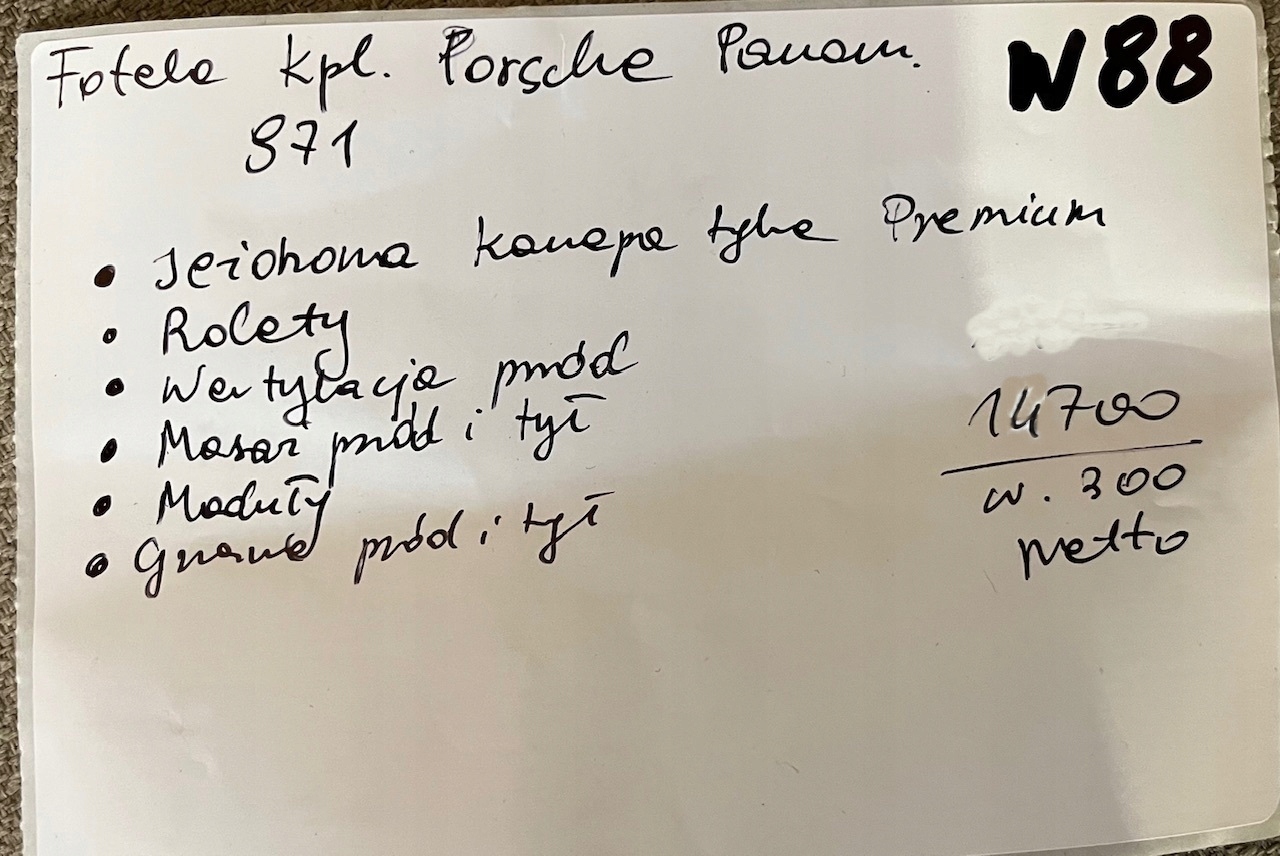 Fotele kpl. Porsche Panam. W88
971
• Jeżdżona kanapa tylna Premium
• Rolety
• Wentylacja przód
• Masaż przód i tył
• Moduły
• Grzanie przód i tył
14700
w. 300
netto